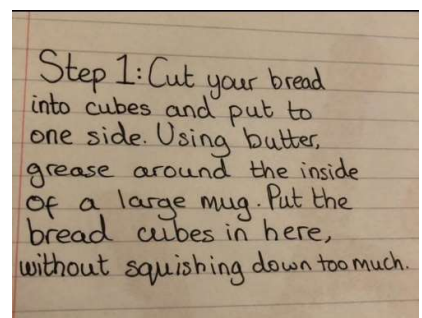 Step 1: Cut your bread
into cubes and put to
one side. Using butter,
grease around the inside
of a large mug. Put the
bread cubes in here,
without squishing down too much.